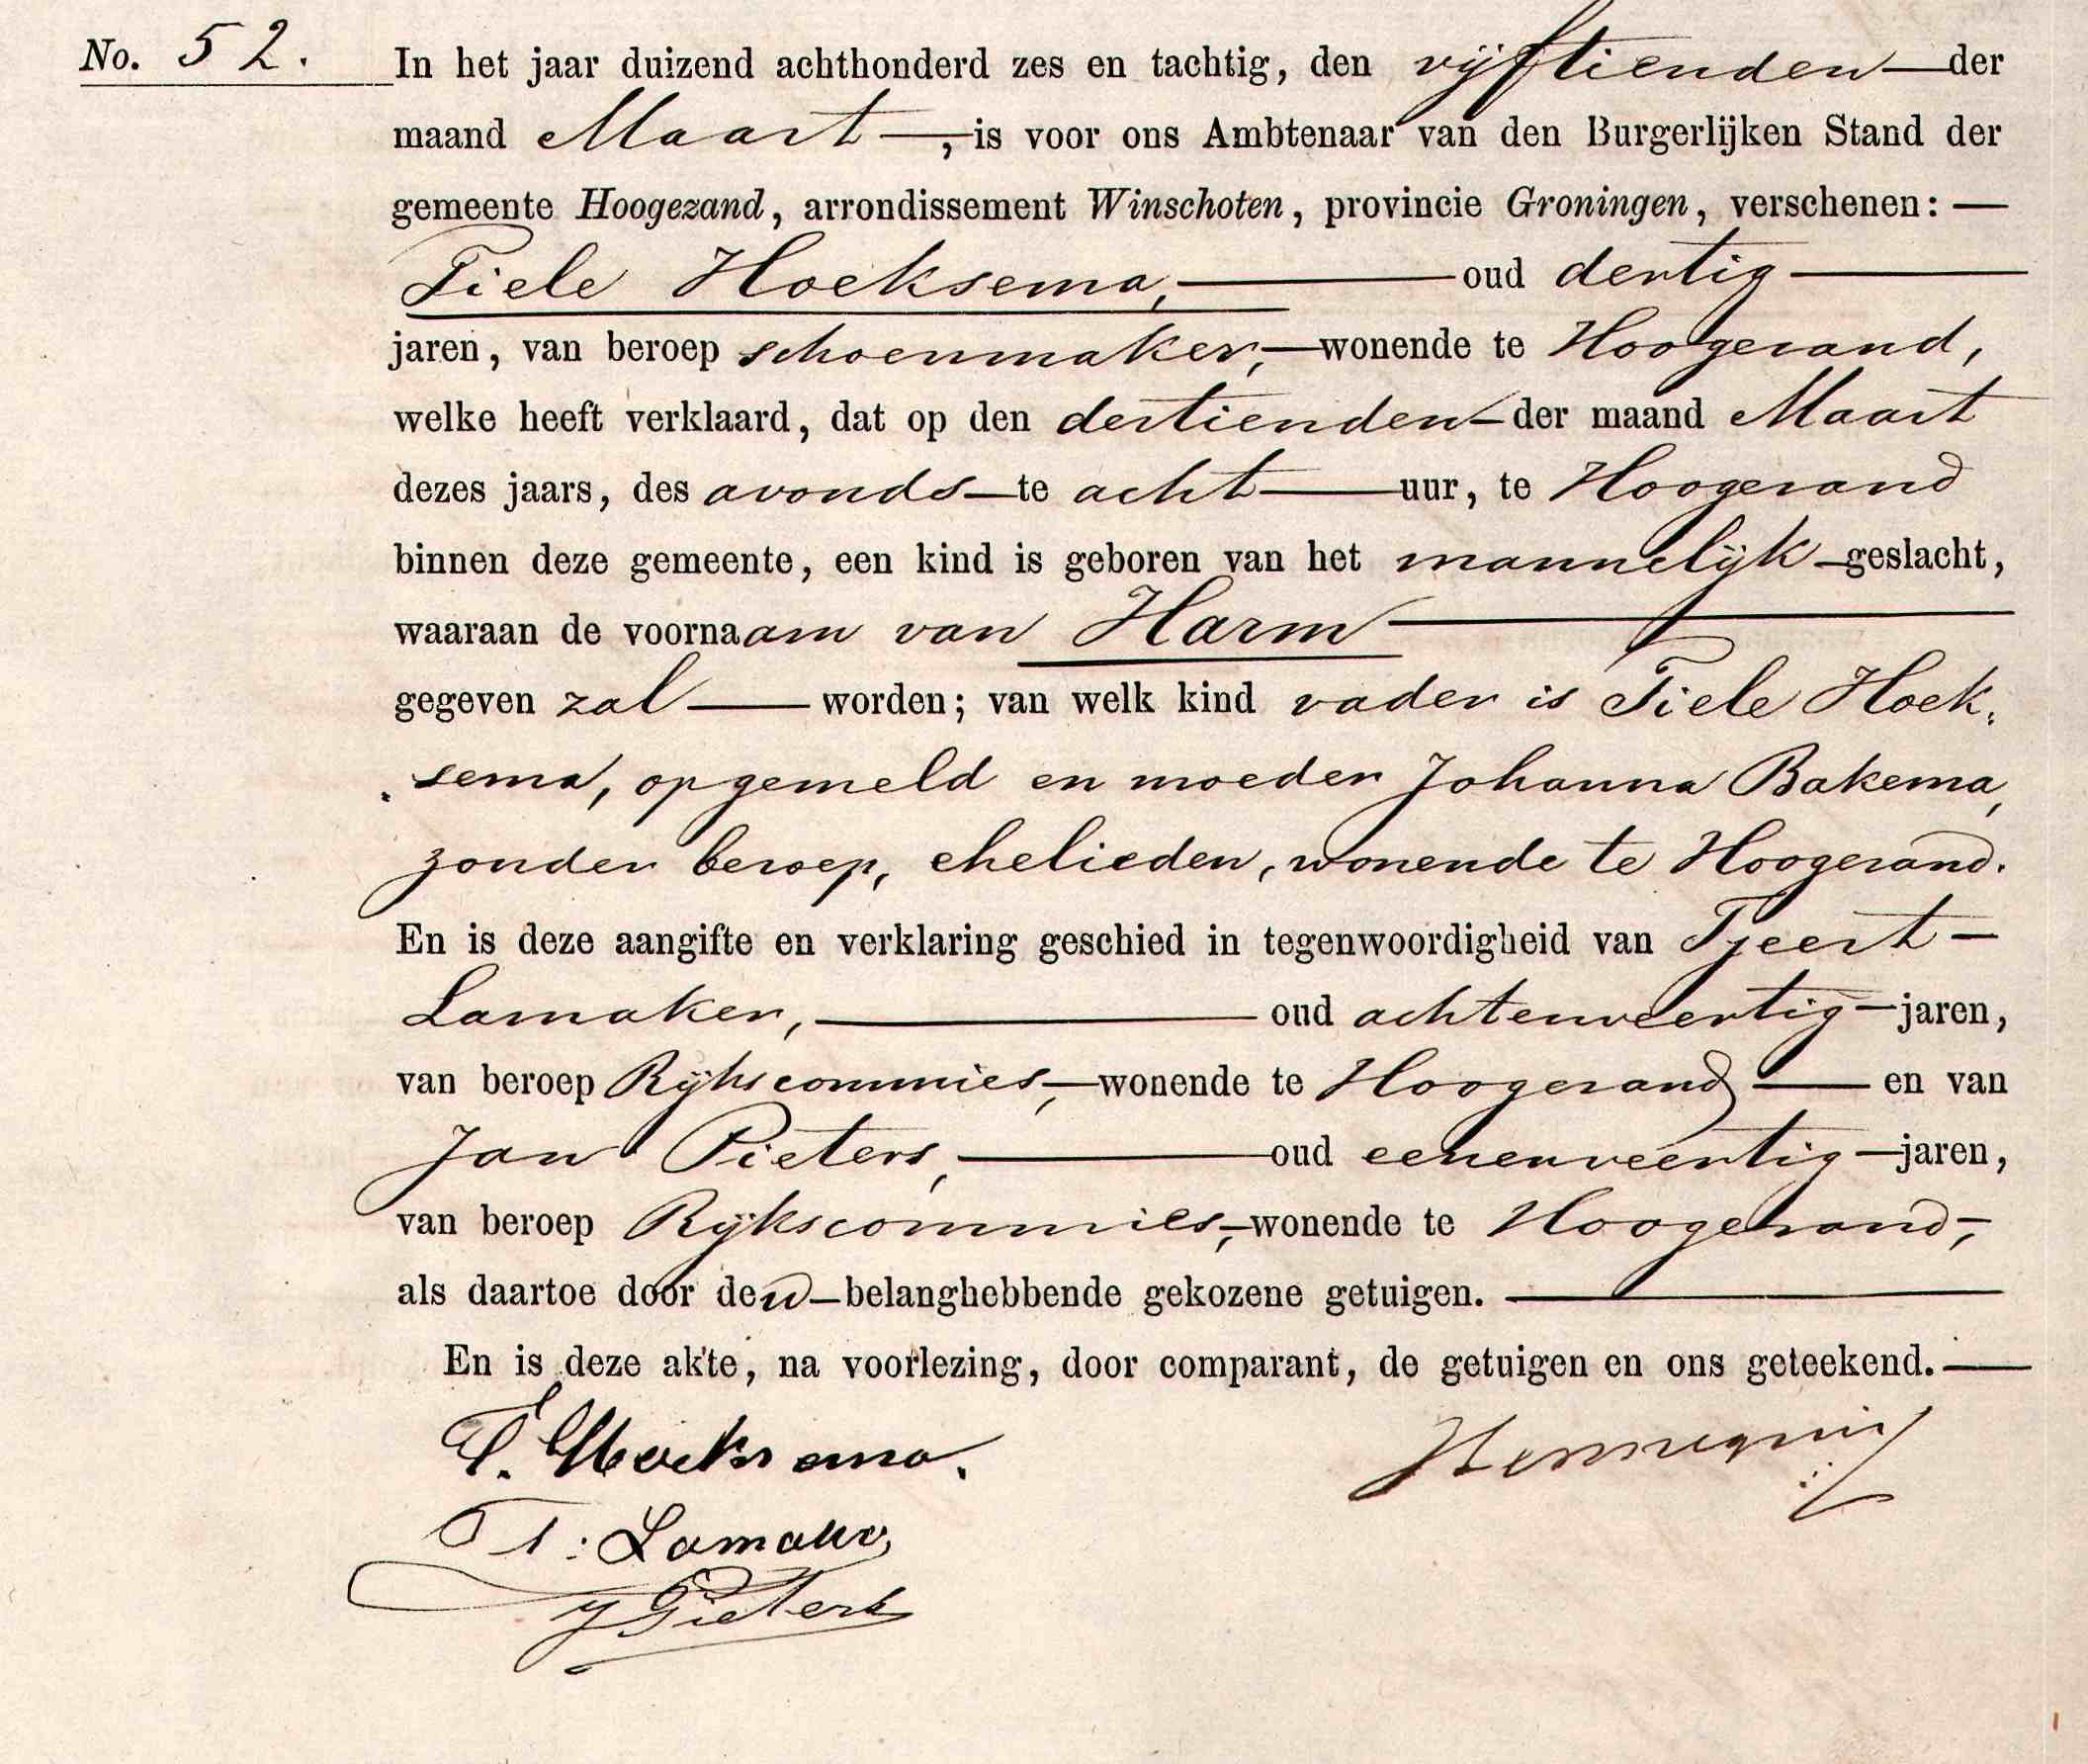 No. 52. In het jaar duizend achthonderd zes en tachtig, den vijftienden der
maand Maart, is voor ons Ambtenaar van den Burgerlijken Stand der
gemeente Hoogezand, arrondissement Winschoten, provincie Groningen, verschenen: —
Tiele Hoeksema, oud dertig
jaren, van beroep schoenmaker, wonende te Hoogezand,
welke heeft verklaard, dat op den dertienden der maand Maart
dezes jaars, des avonds te acht uur, te Hoogezand
binnen deze gemeente, een kind is geboren van het mannelijk geslacht,
waaraan de voornaam van Harm
gegeven zal worden; van welk kind vader is Tiele Hoek-
sema, opgemeld en moeder Johanna Bakema,
zonder beroep, echelieden, wonende te Hoogezand.
En is deze aangifte en verklaring geschied in tegenwoordigheid van Tjeert
Lamaker, oud achtenveertig jaren,
van beroep Rijkscommies, wonende te Hoogezand en van
Jan Pieters, oud eenenveertig jaren,
van beroep Rijkscommies, wonende te Hoogezand,
als daartoe door den belanghebbende gekozene getuigen.
En is deze akte, na voorlezing, door comparant, de getuigen en ons geteekend.
T. Hoeksema.
Hennequin
T: Lamaker
J Pieters